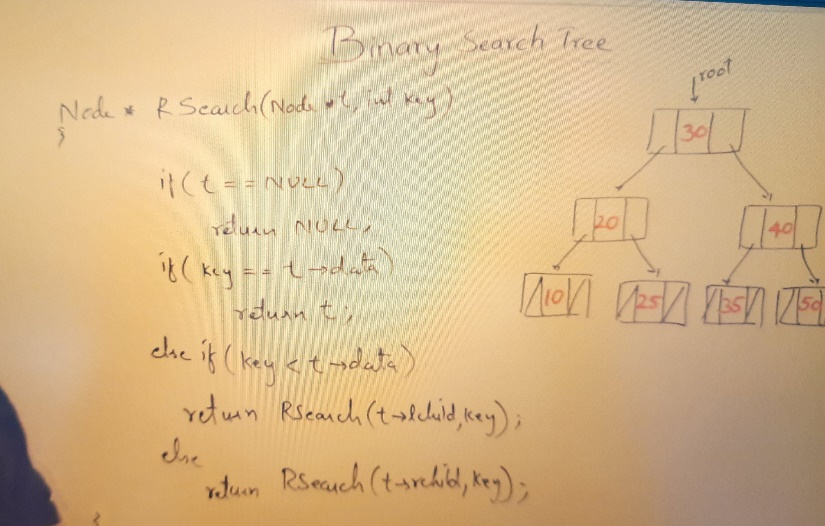 Binary Search Tree
root
Node * RSearch(Node *t, int key)
{
if(t==NULL)
return NULL;
if(key == t→data)
return t;
else if(key < t→data)
return RSearch(t→lchild,key);
else
return RSearch(t→rchild,key);
}
30
20 40
10 25 35 50